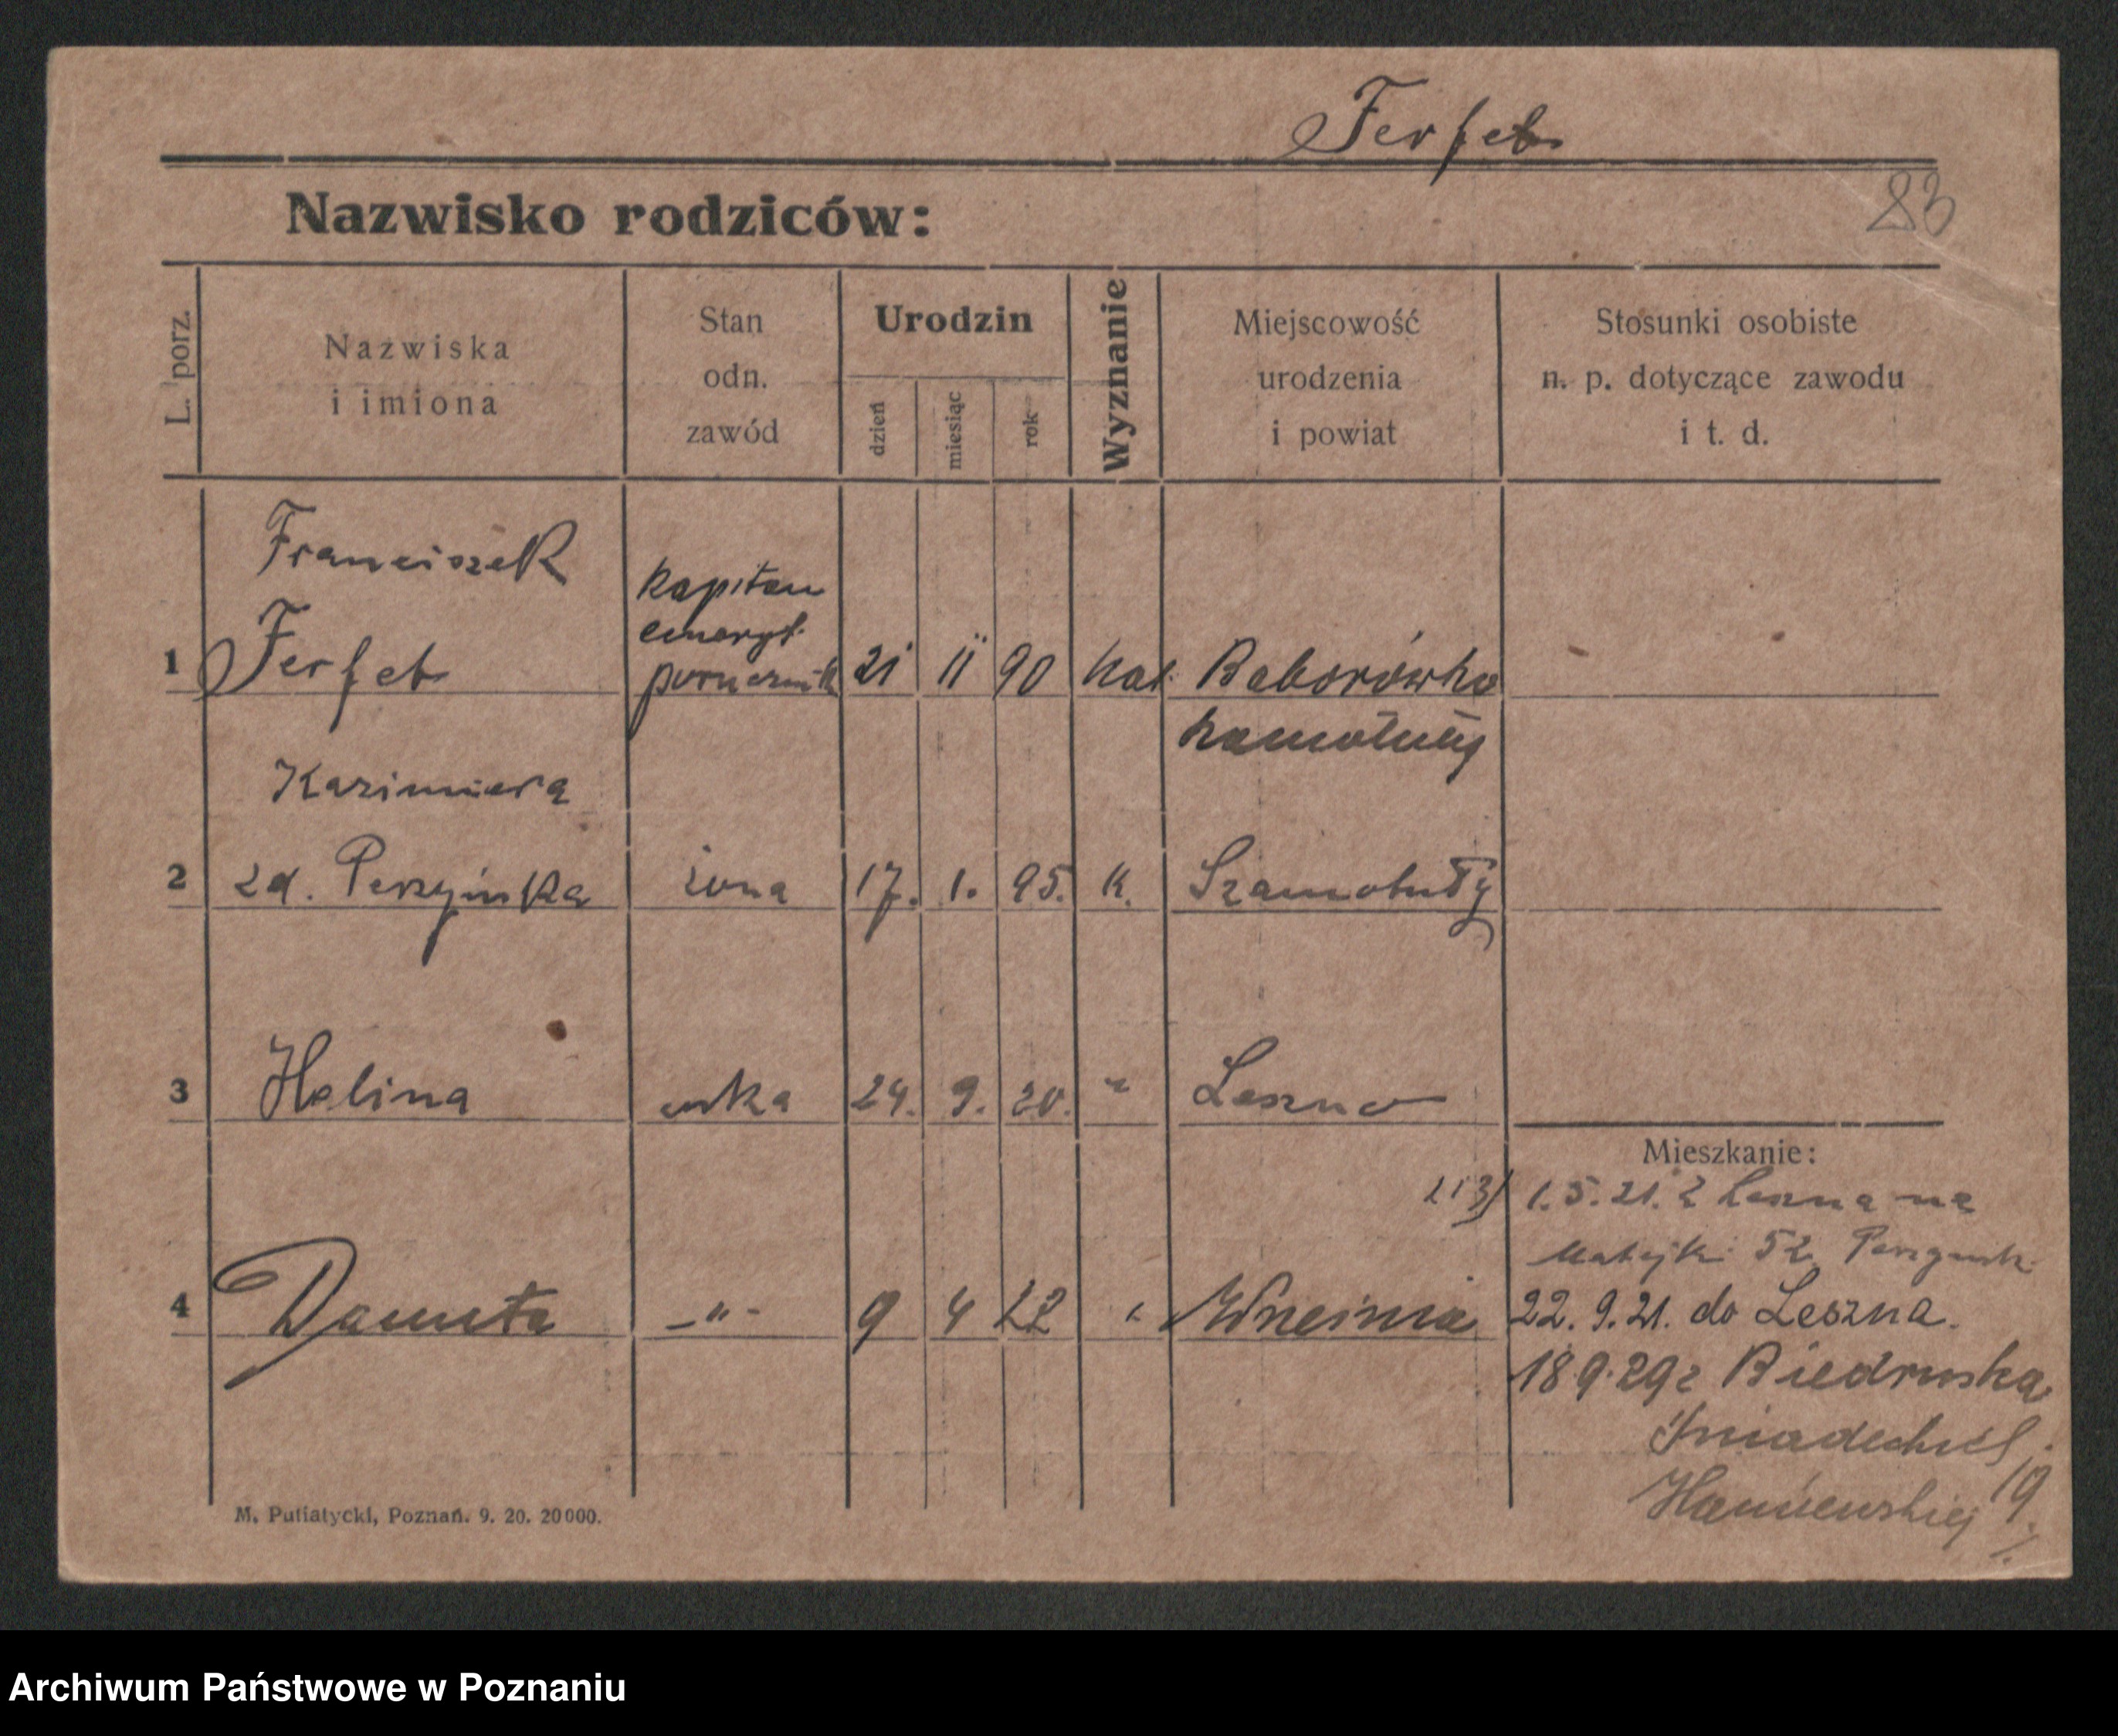 Ferfet
Nazwisko rodziców:
83
L. porz.
Nazwiska
i imiona
Stan
odn.
zawód
Urodzin
dzień
miesiąc
rok
Wyznanie
Miejscowość
urodzenia
i powiat
Stosunki osobiste
n. p. dotyczące zawodu
i t. d.
Franciszek
kapitan
emeryt.
1 Ferfet porucznik 21 11 90 kat. Baborówko
Kazimiera
2 zd. Perzyńska żona 17. 1. 95. k. Szamotuły
3 Halina córka 24. 9. 20. " Leszno
Mieszkanie:
1.5.21. z Leszna na
Matejki 52
4 Danuta -"- 9 4 22 " Września
22. 9. 21. do Leszna.
18.9.29 z Biedruska
Śniadeckich
19
M. Putiatycki, Poznań. 9. 20. 20000.
Archiwum Państwowe w Poznaniu